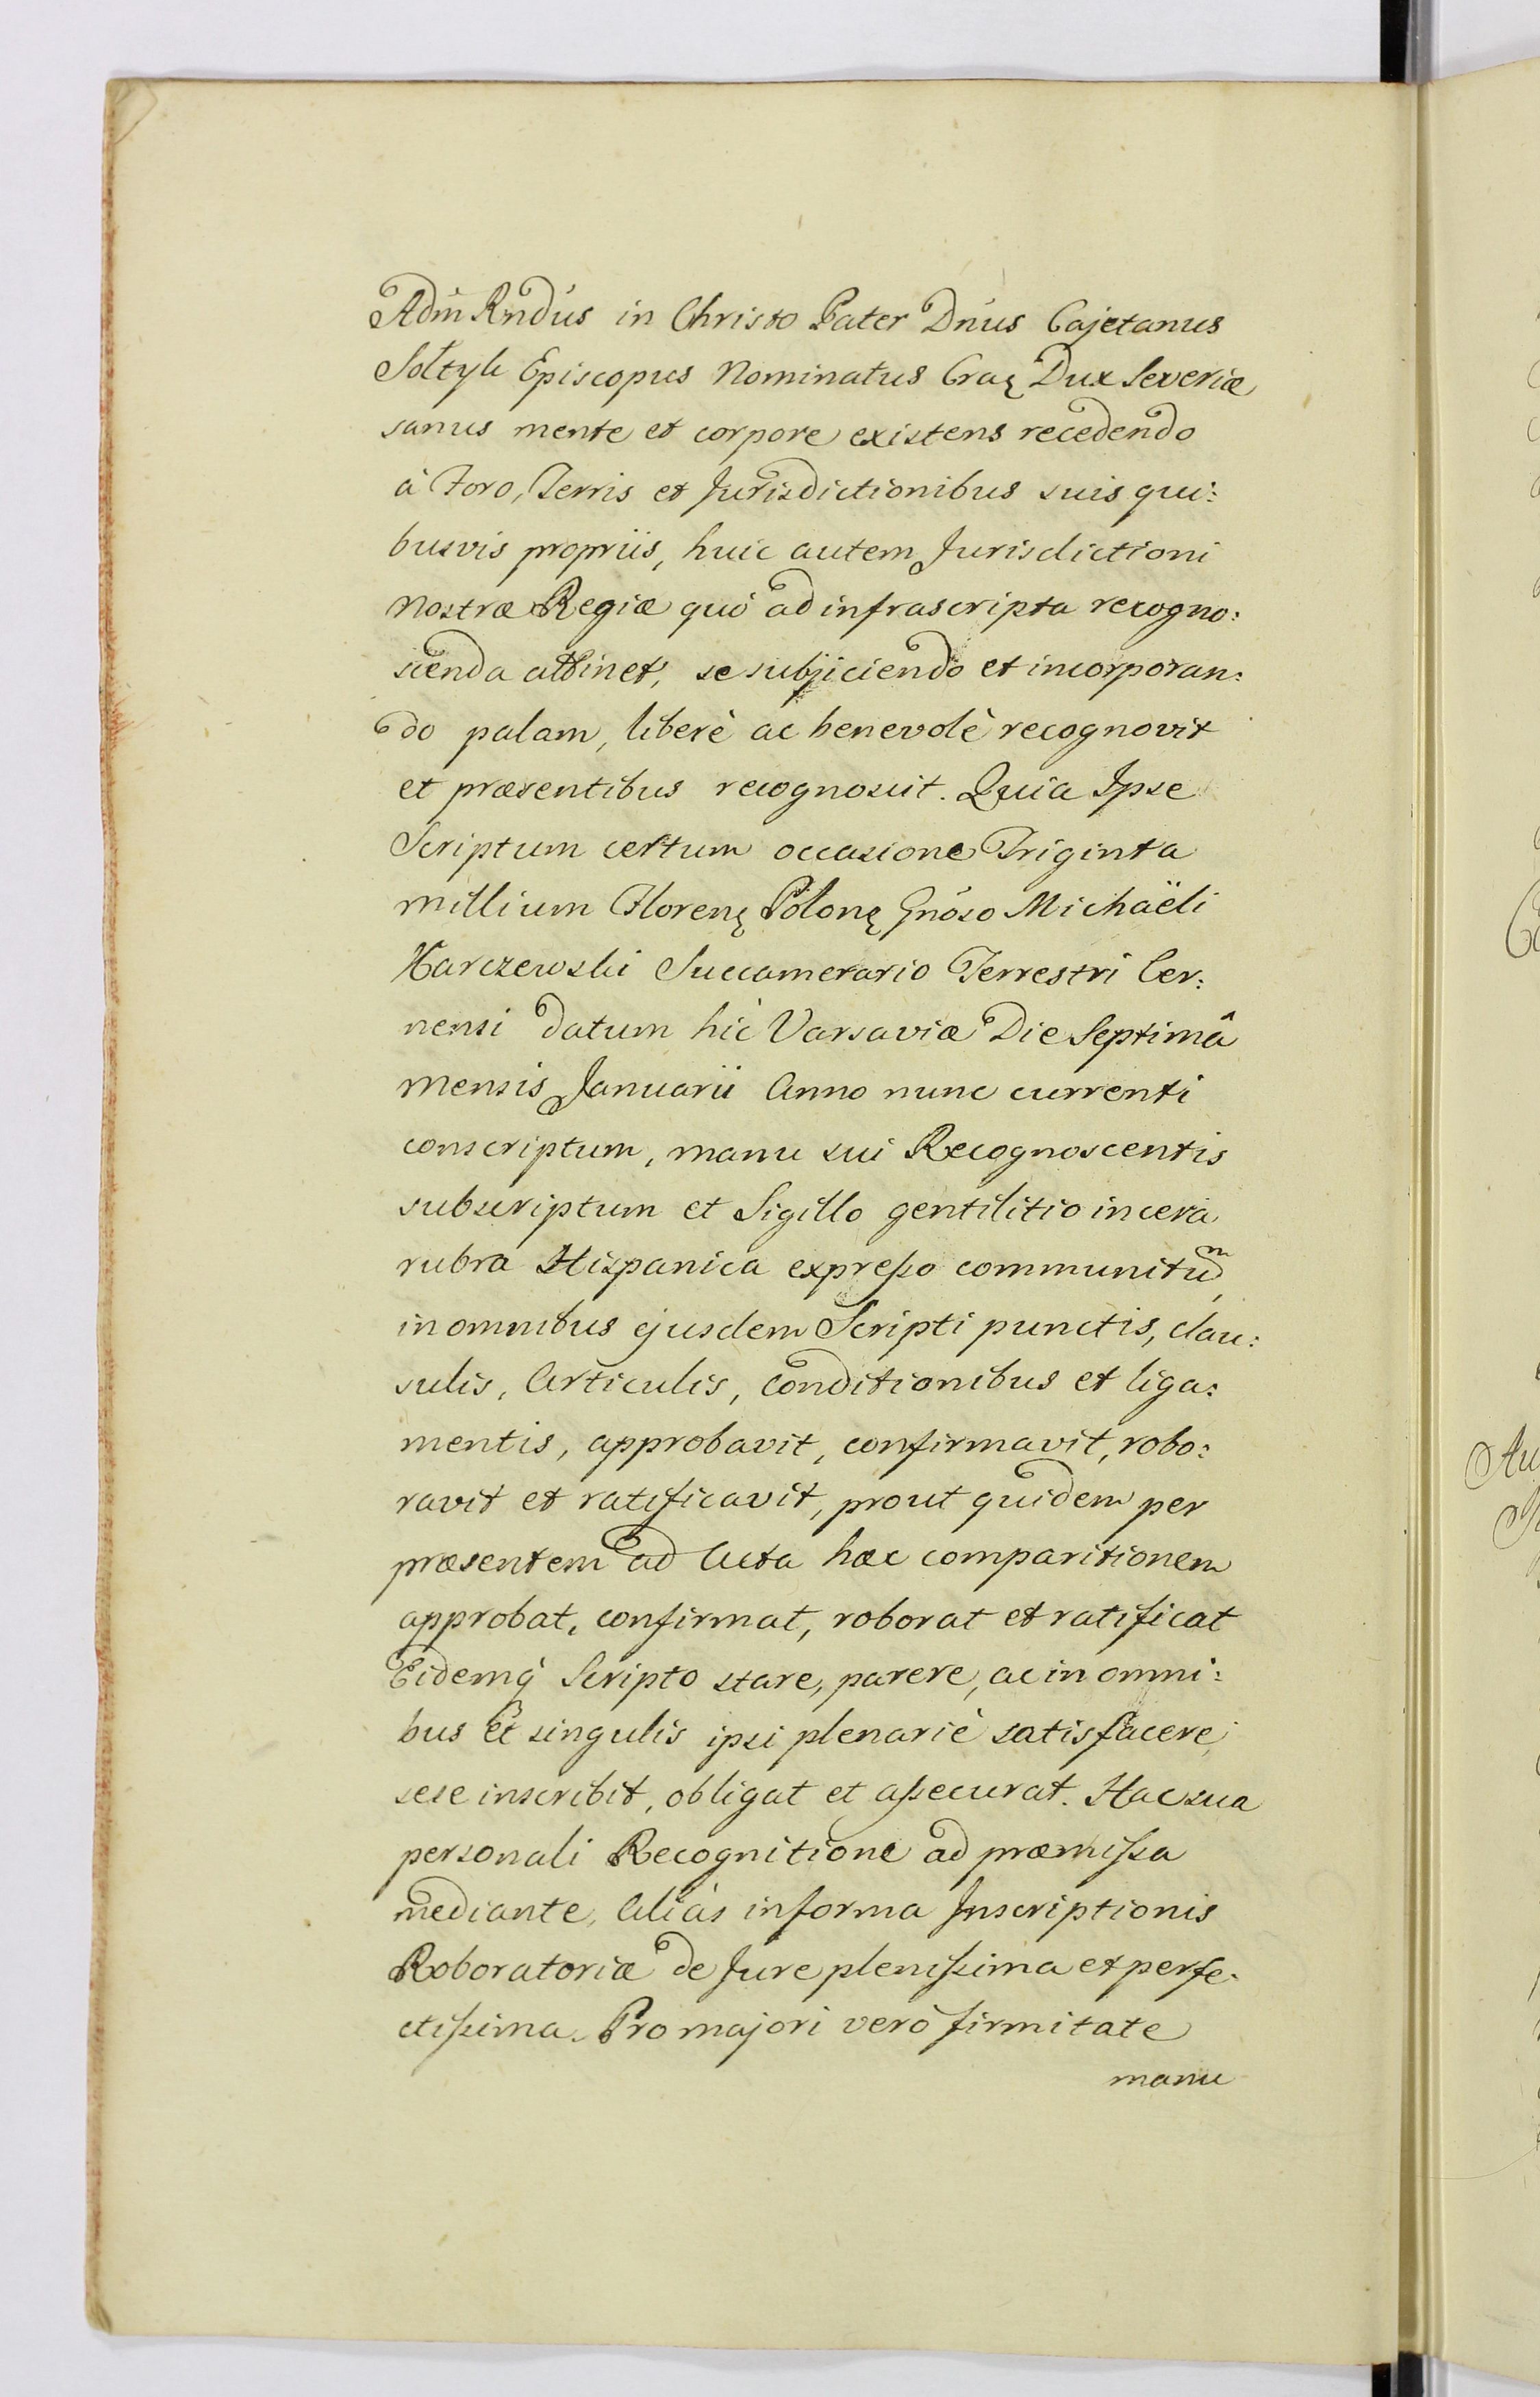 Adm̃ Rñdus in Christo Pater Dñus Cajetanus
Sołtyk Episcopus Nominatus Craꝫ Dux Severiæ
sanus mente et corpore existens recedendo
à Foro, Terris et Jurisdictionibus suis qui:
busvis propriis, huic autem Jurisdictioni
Nostræ Regiæ quò ad infrascripta recogno:
scenda attinet, se subjiciendo et incorporan:
do palam, liberè ac benevolè recognovit
et præsentibus recognoscit. Quia Ipse
Scriptum certum occasione Triginta
millium Florenꝫ Polonꝫ Gñoso Michaëli
Karczewski Succamerario Terrestri Cer:
nensi datum hic Varsaviæ Die Septimâ
mensis Januarii Anno nunc currenti
conscriptum, manu sui Recognoscentis
subscriptum et Sigillo gentilitio in cera
rubra Hispanica expreſso communitũm,
in omnibus ejusdem Scripti punctis, clau:
sulis, Articulis, Conditionibus et liga:
mentis, approbavit, confirmavit, robo:
ravit et ratificavit, prout quidem per
præsentem ad Acta hæc comparitionem
approbat, confirmat, roborat et ratificat
Eidemq̀ Scripto stare, parere, ac in omni:
bus et singulis ipsi plenariè satisfacere,
sese inscribit, obligat et aſsecurat. Hac sua
personali Recognitione ad præmiſsa
mediante, Aliàs in forma Inscriptionis
Roboratoriæ de Jure pleniſsima et perfe:
ctiſsima. Pro majori verò firmitate
manu